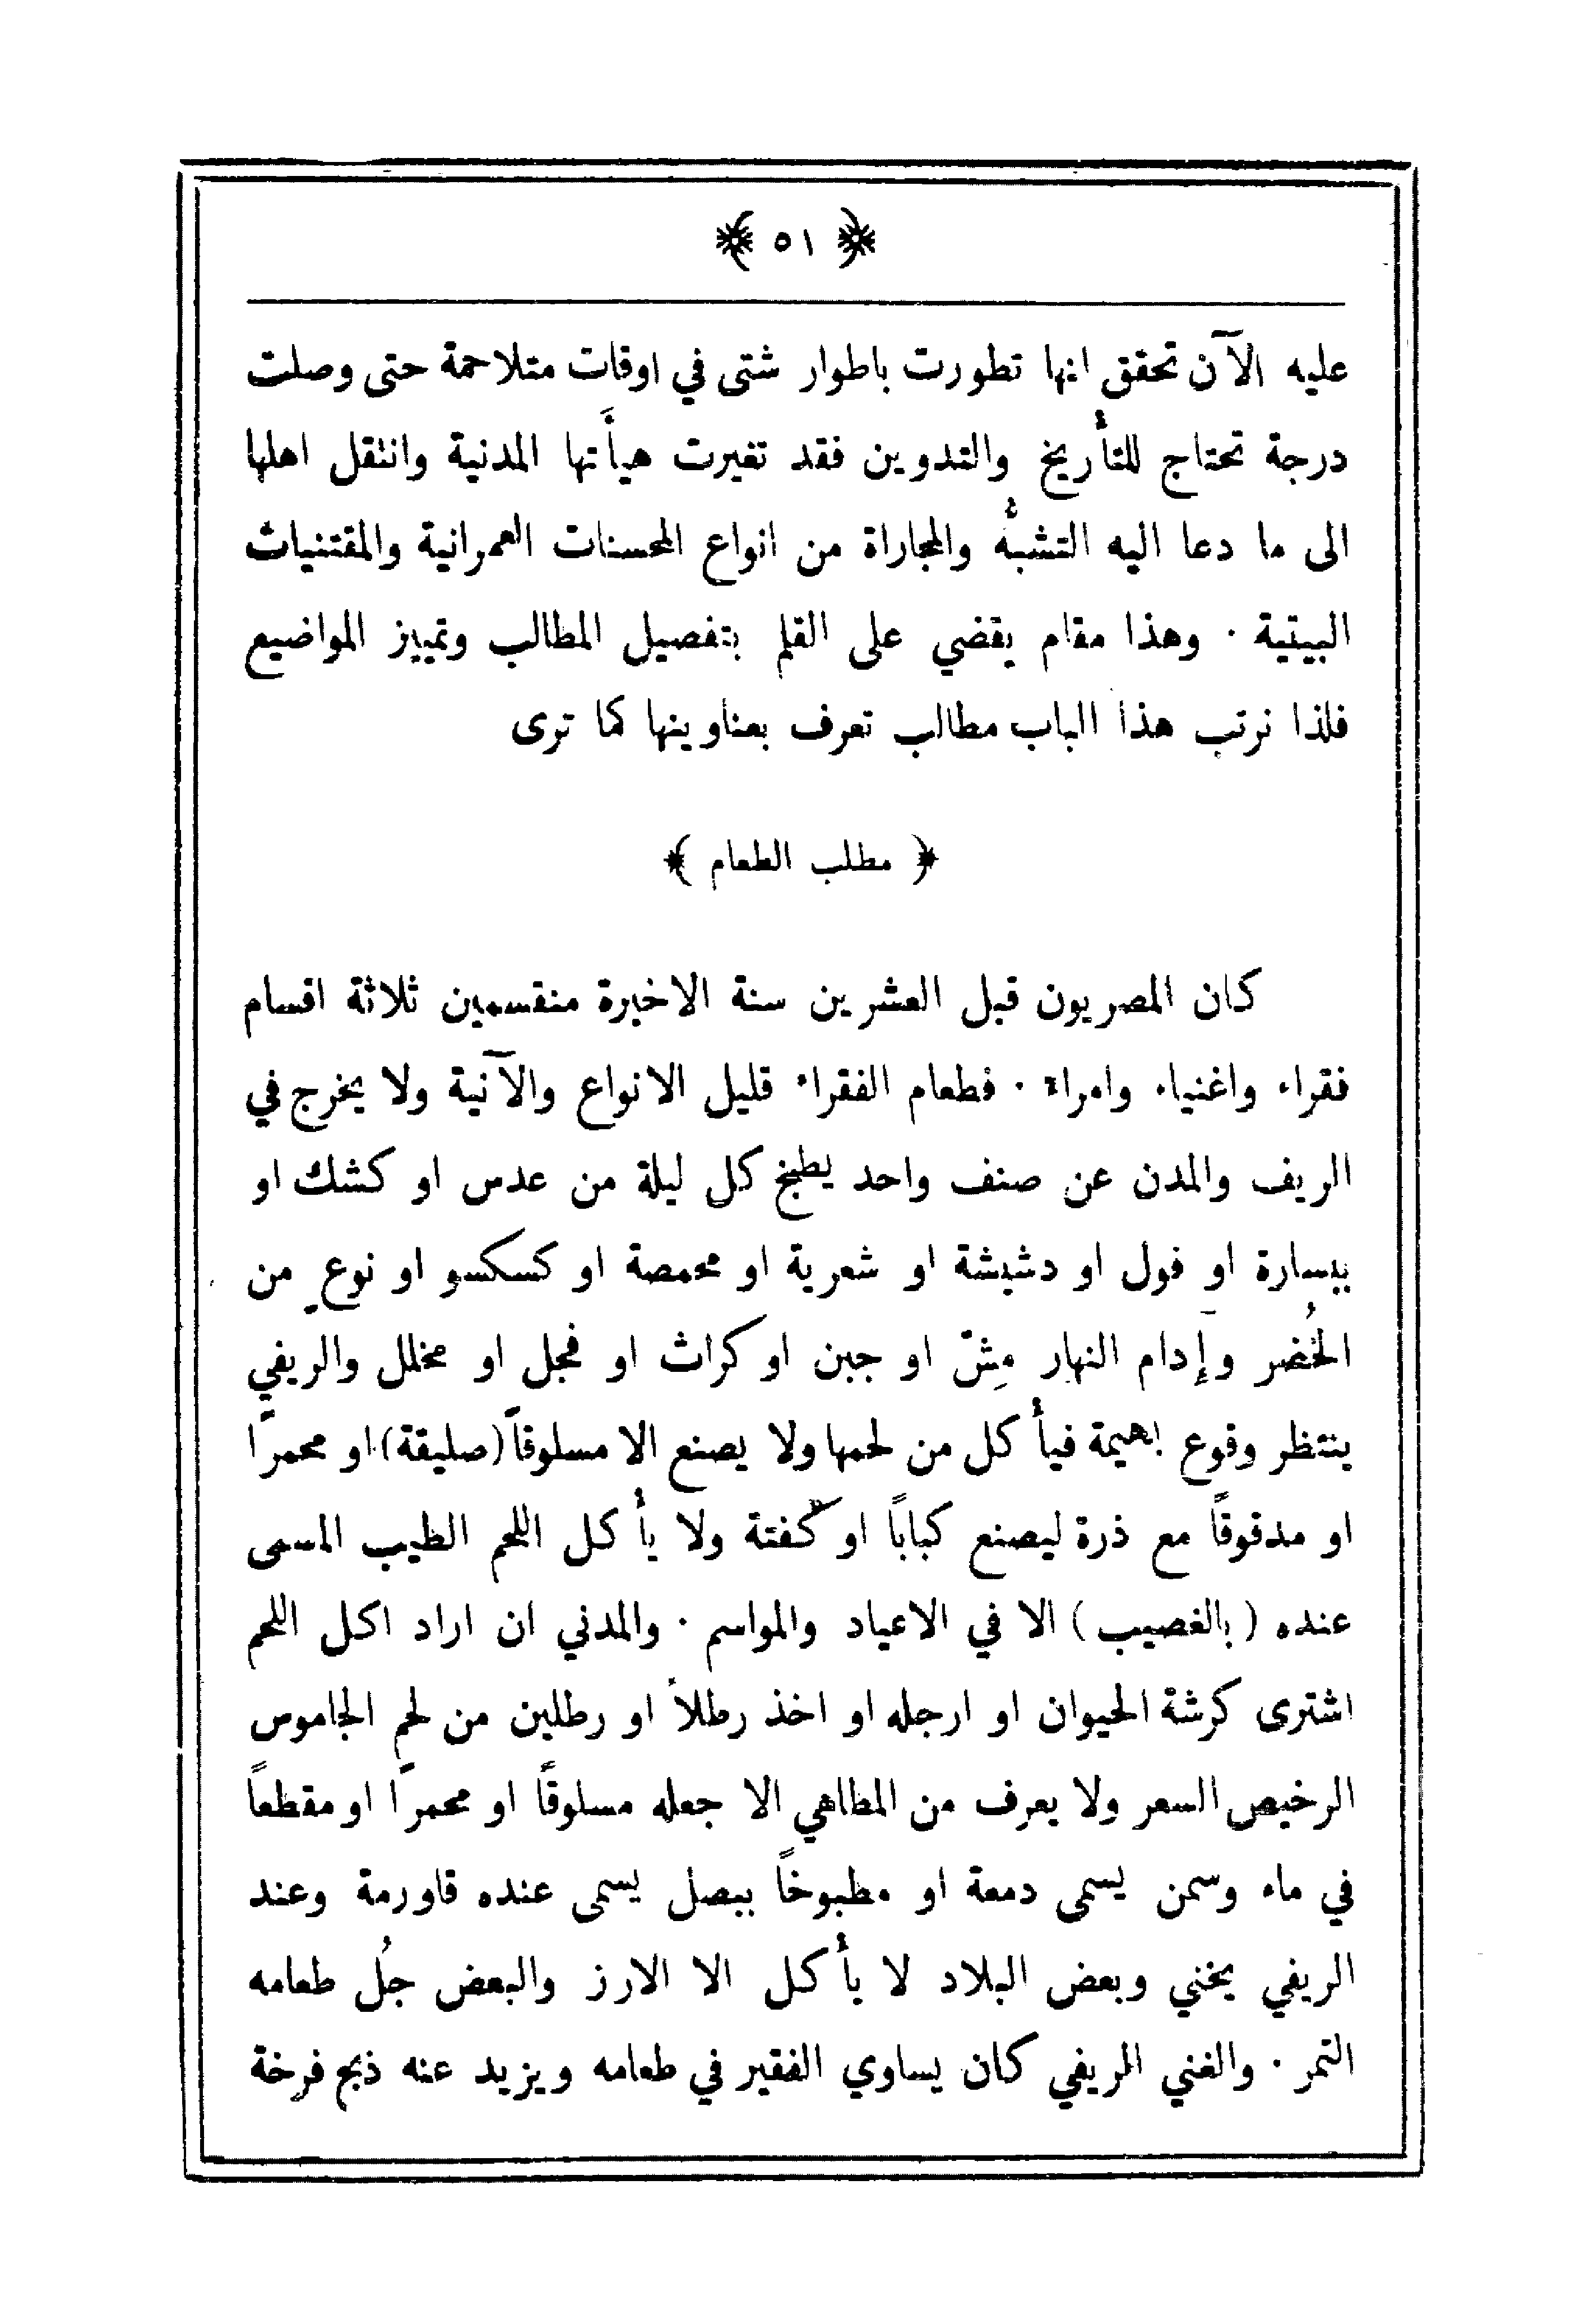 ﴿ ٥١ ﴾
عليه الآن تحقق انها تطورت باطوار شتى في اوقات متلاحمة حتى وصلت
درجة تحتاج للتأريخ والتدوين فقد تغيرت هيأتها المدنية وانتقل اهلها
الى ما دعا اليه التشبُّه والمجاراة من انواع المحسنات العمرانية والمقتنيات
البيتية · وهذا مقام يقضي على القلم بتفصيل المطالب وتمييز المواضيع
فلذا نرتب هذا الباب مطالب تعرف بعناوينها كما ترى
﴿ مطلب الطعام ﴾
كان المصريون قبل العشرين سنة الاخيرة منقسمين ثلاثة اقسام
فقراء واغنياء وامراء · فطعام الفقراء قليل الانواع والآنية ولا يخرج في
الريف والمدن عن صنف واحد يطبخ كل ليلة من عدس او كشك او
بيسارة او فول او دشيشة او شعرية او محمصة او كسكسو او نوعٍ من
الخُضر وإدام النهار مِشّ او جبن او كراث او فجل او مخلل والريفي
ينتظر وقوع بهيمة فيأكل من لحمها ولا يصنع الا مسلوقاً (صليقة) او محمراً
او مدقوقاً مع ذرة ليصنع كباباً او كفتة ولا يأكل اللحم الطيب المسمى
عنده (بالغصيب) الا في الاعياد والمواسم · والمدني ان اراد اكل اللحم
اشترى كرشة الحيوان او ارجله او اخذ رطلاً او رطلين من لحم الجاموس
الرخيص السعر ولا يعرف من المطاهي الا جعله مسلوقاً او محمراً او مقطعاً
في ماء وسمن يسمى دمعة او مطبوخاً ببصل يسمى عنده قاورمة وعند
الريفي يخني وبعض البلاد لا يأكل الا الارز والبعض جُل طعامه
التمر · والغني الريفي كان يساوي الفقير في طعامه ويزيد عنه ذبح فرخة